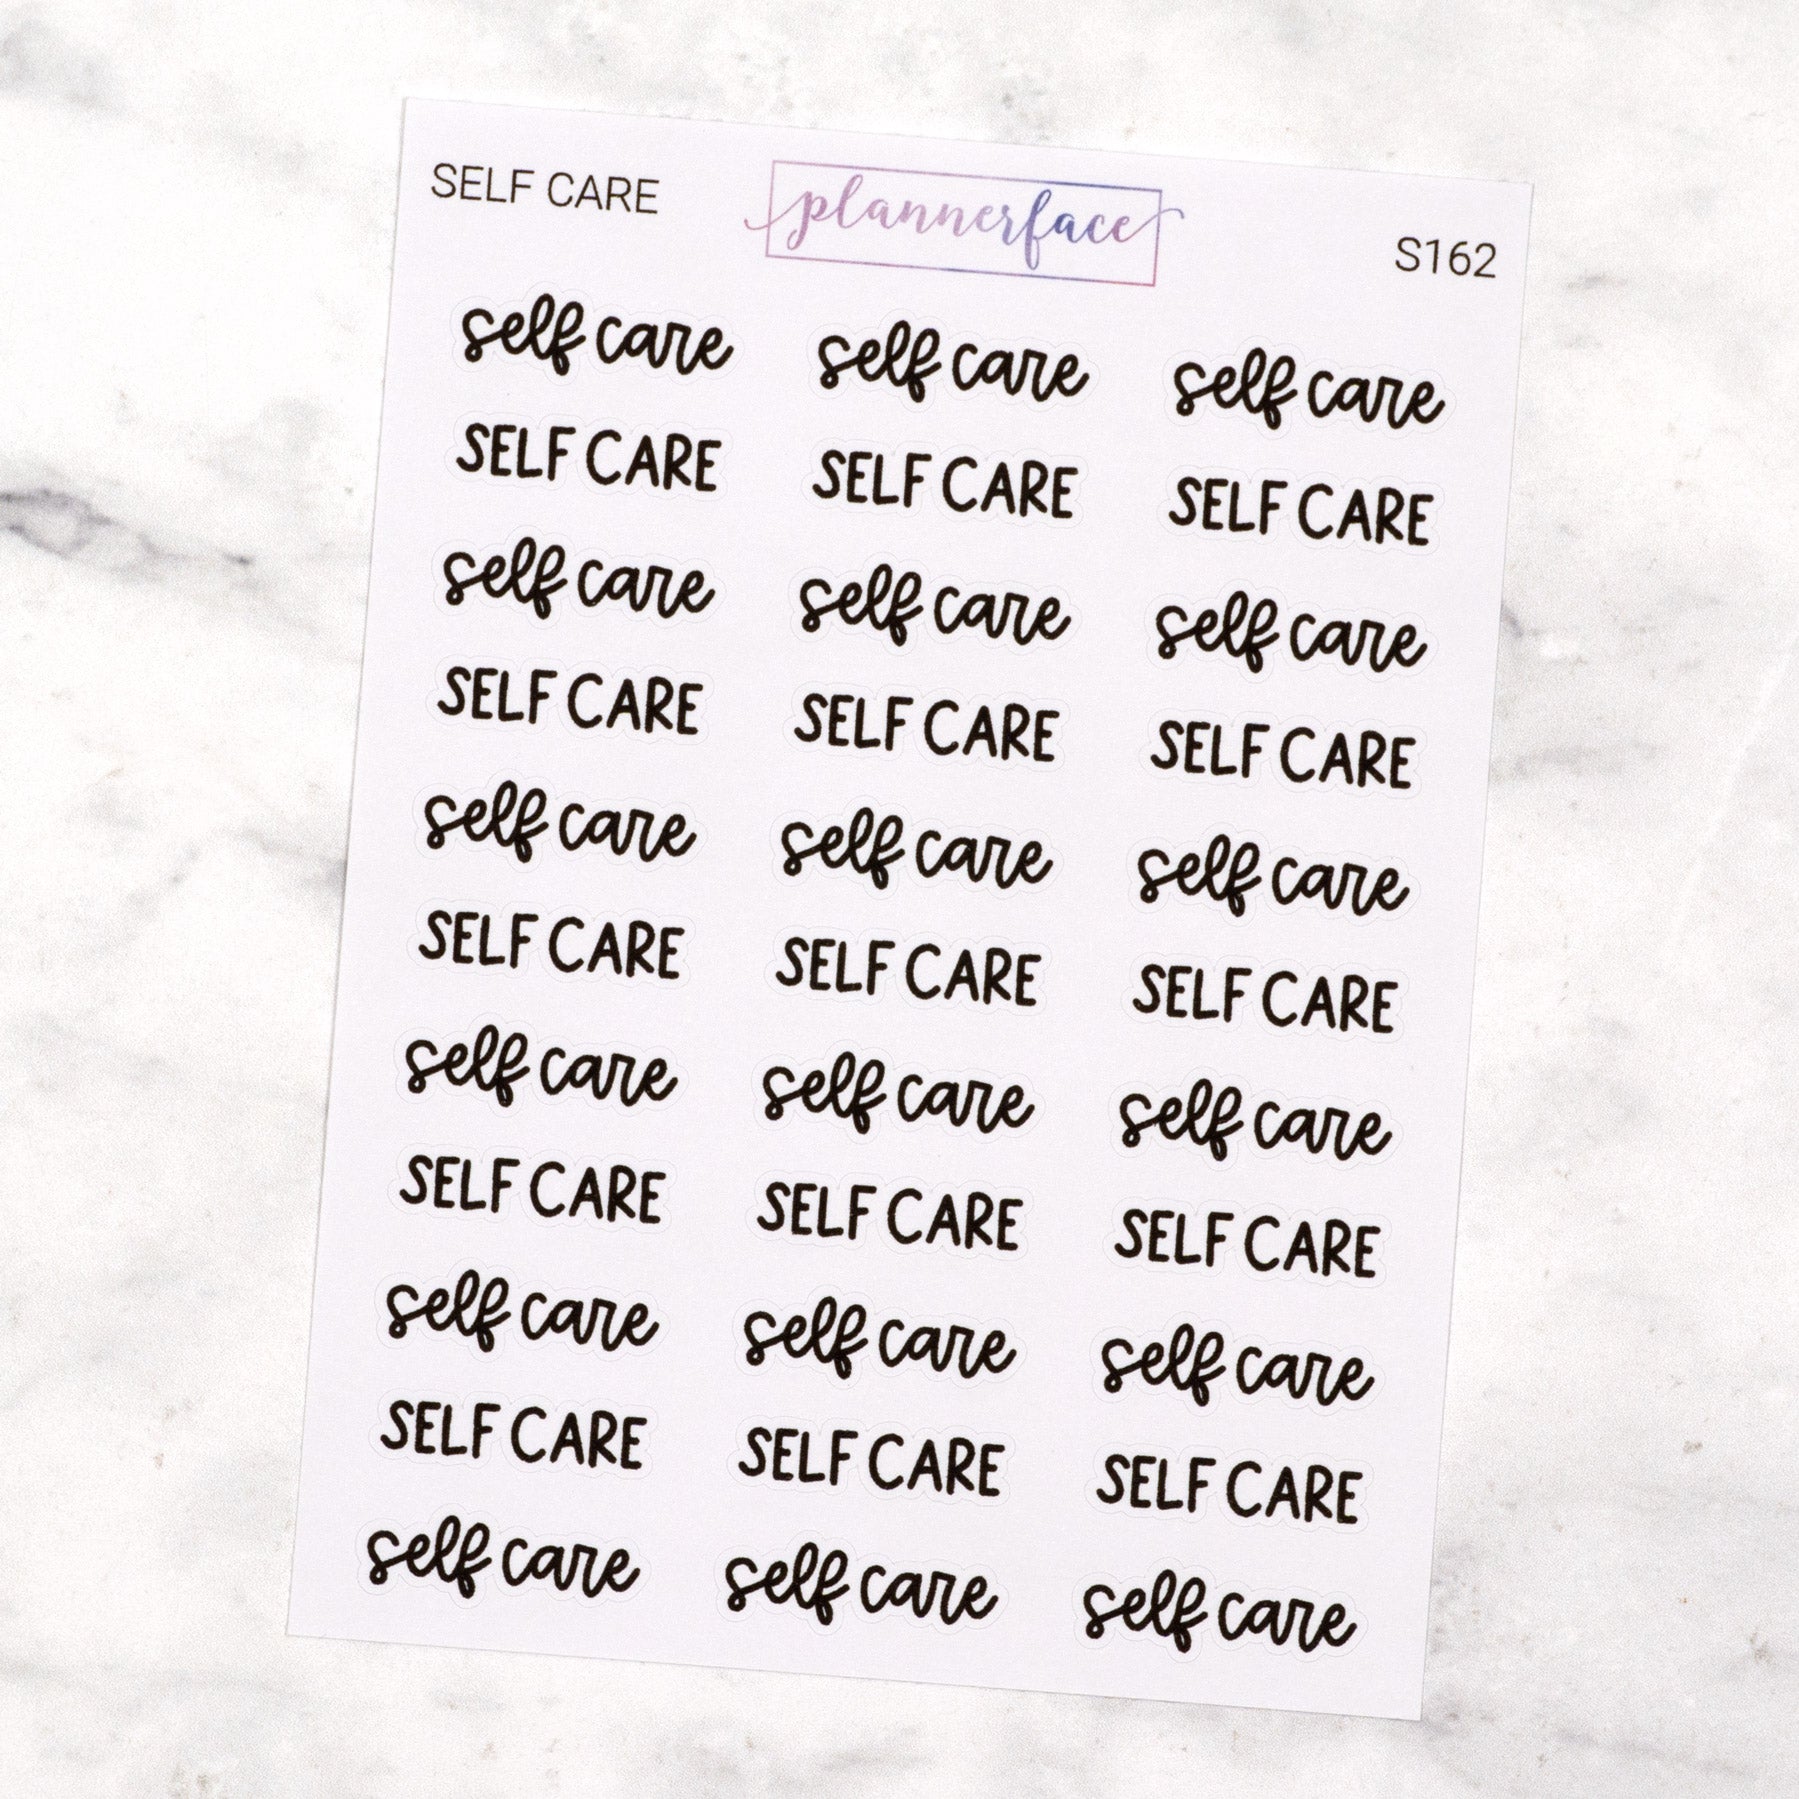 SELF CARE plannerface S162
self care self care self care
SELF CARE SELF CARE SELF CARE
self care self care self care
SELF CARE SELF CARE SELF CARE
self care self care self care
SELF CARE SELF CARE SELF CARE
self care self care self care
SELF CARE SELF CARE SELF CARE
self care self care self care
SELF CARE SELF CARE SELF CARE
self care self care self care